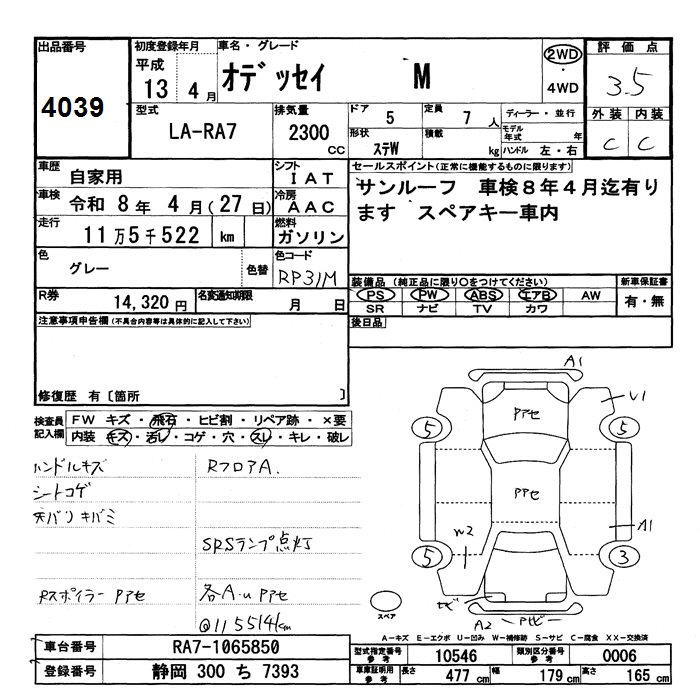 出品番号
4039
初度登録年月
平成
13 4月
車名・グレード
オデッセイ M
2WD
・
4WD
評価点
3.5
外装 内装
C C
型式
LA-RA7
排気量
2300 CC
ドア 5
定員 7 人
形状 ステW
積載 kg
ディーラー・並行
モデル年式 年
ハンドル 左・右
車歴 自家用
シフト IAT
車検 令和 8年 4月(27日)
冷房 AAC
走行 11万5千522 km
燃料 ガソリン
色 グレー 色替
色コード RP31M
R券 14,320円
名変通知期限 月 日
セールスポイント(正常に機能するものに限ります)
サンルーフ 車検8年4月迄有り
ます スペアキー車内
装備品(純正品に限り○をつけてください)
PS PW ABS エアB AW
SR ナビ TV カワ
新車保証書
有・無
後日品
注意事項申告欄(不具合内容等は具体的に記入して下さい)
修復歴 有〔箇所 〕
検査員記入欄
FW キズ・飛石・ヒビ割・リペア跡・×要
内装 キズ・汚レ・コゲ・穴・スレ・キレ・破レ
ハンドルキズ
シートコゲ
天バリキバミ
RフロアA.
SRSランプ点灯
Rスポイラー Pアセ
各A.u Pアセ
@115514km
A1
U1
Pアセ
5
5
Pアセ
A1
W2
5
3
サビ
A2 Pビ
スペア
A−キズ E−エクボ U−凹み W−補修跡 S−サビ C−腐食 XX−交換済
車台番号 RA7-1065850
登録番号 静岡 300 ち 7393
型式指定番号 参考 10546
類別区分番号 参考 0006
車庫証明用 参考 長さ 477 cm 幅 179 cm 高さ 165 cm